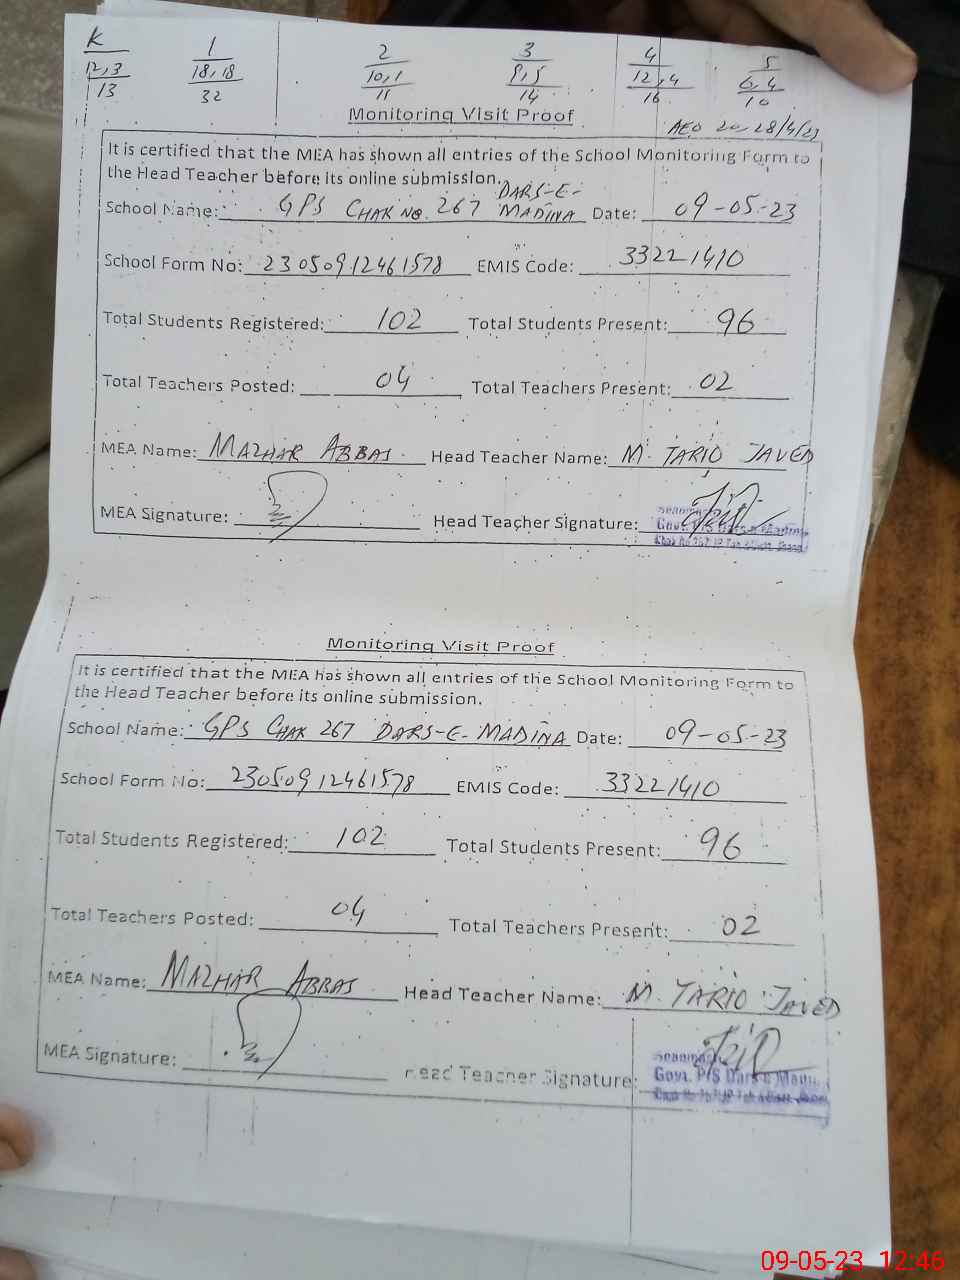 K 1 2 3 4 5
12,3 18,18 10,1 9,5 12,4 6,4
13 32 11 14 16 10
Monitoring Visit Proof
AEO 20, 28/4/23
It is certified that the MEA has shown all entries of the School Monitoring Form to
the Head Teacher before its online submission.
School Name: GPS CHAK NO. 267 DARS-E-MADINA Date: 09-05-23
School Form No: 23050912461578 EMIS Code: 33221410
Total Students Registered: 102 Total Students Present: 96
Total Teachers Posted: 04 Total Teachers Present: 02
MEA Name: MAZHAR ABBAS Head Teacher Name: M. TARIQ JAVED
MEA Signature: Head Teacher Signature:
Govt. P/S Dars-e-Madina
Monitoring Visit Proof
It is certified that the MEA has shown all entries of the School Monitoring Form to
the Head Teacher before its online submission.
School Name: GPS CHAK 267 DARS-E-MADINA Date: 09-05-23
School Form No: 23050912461578 EMIS Code: 33221410
Total Students Registered: 102 Total Students Present: 96
Total Teachers Posted: 04 Total Teachers Present: 02
MEA Name: MAZHAR ABBAS Head Teacher Name: M. TARIQ JAVED
MEA Signature: Head Teacher Signature:
Govt. P/S Dars-e
09-05-23 12:46